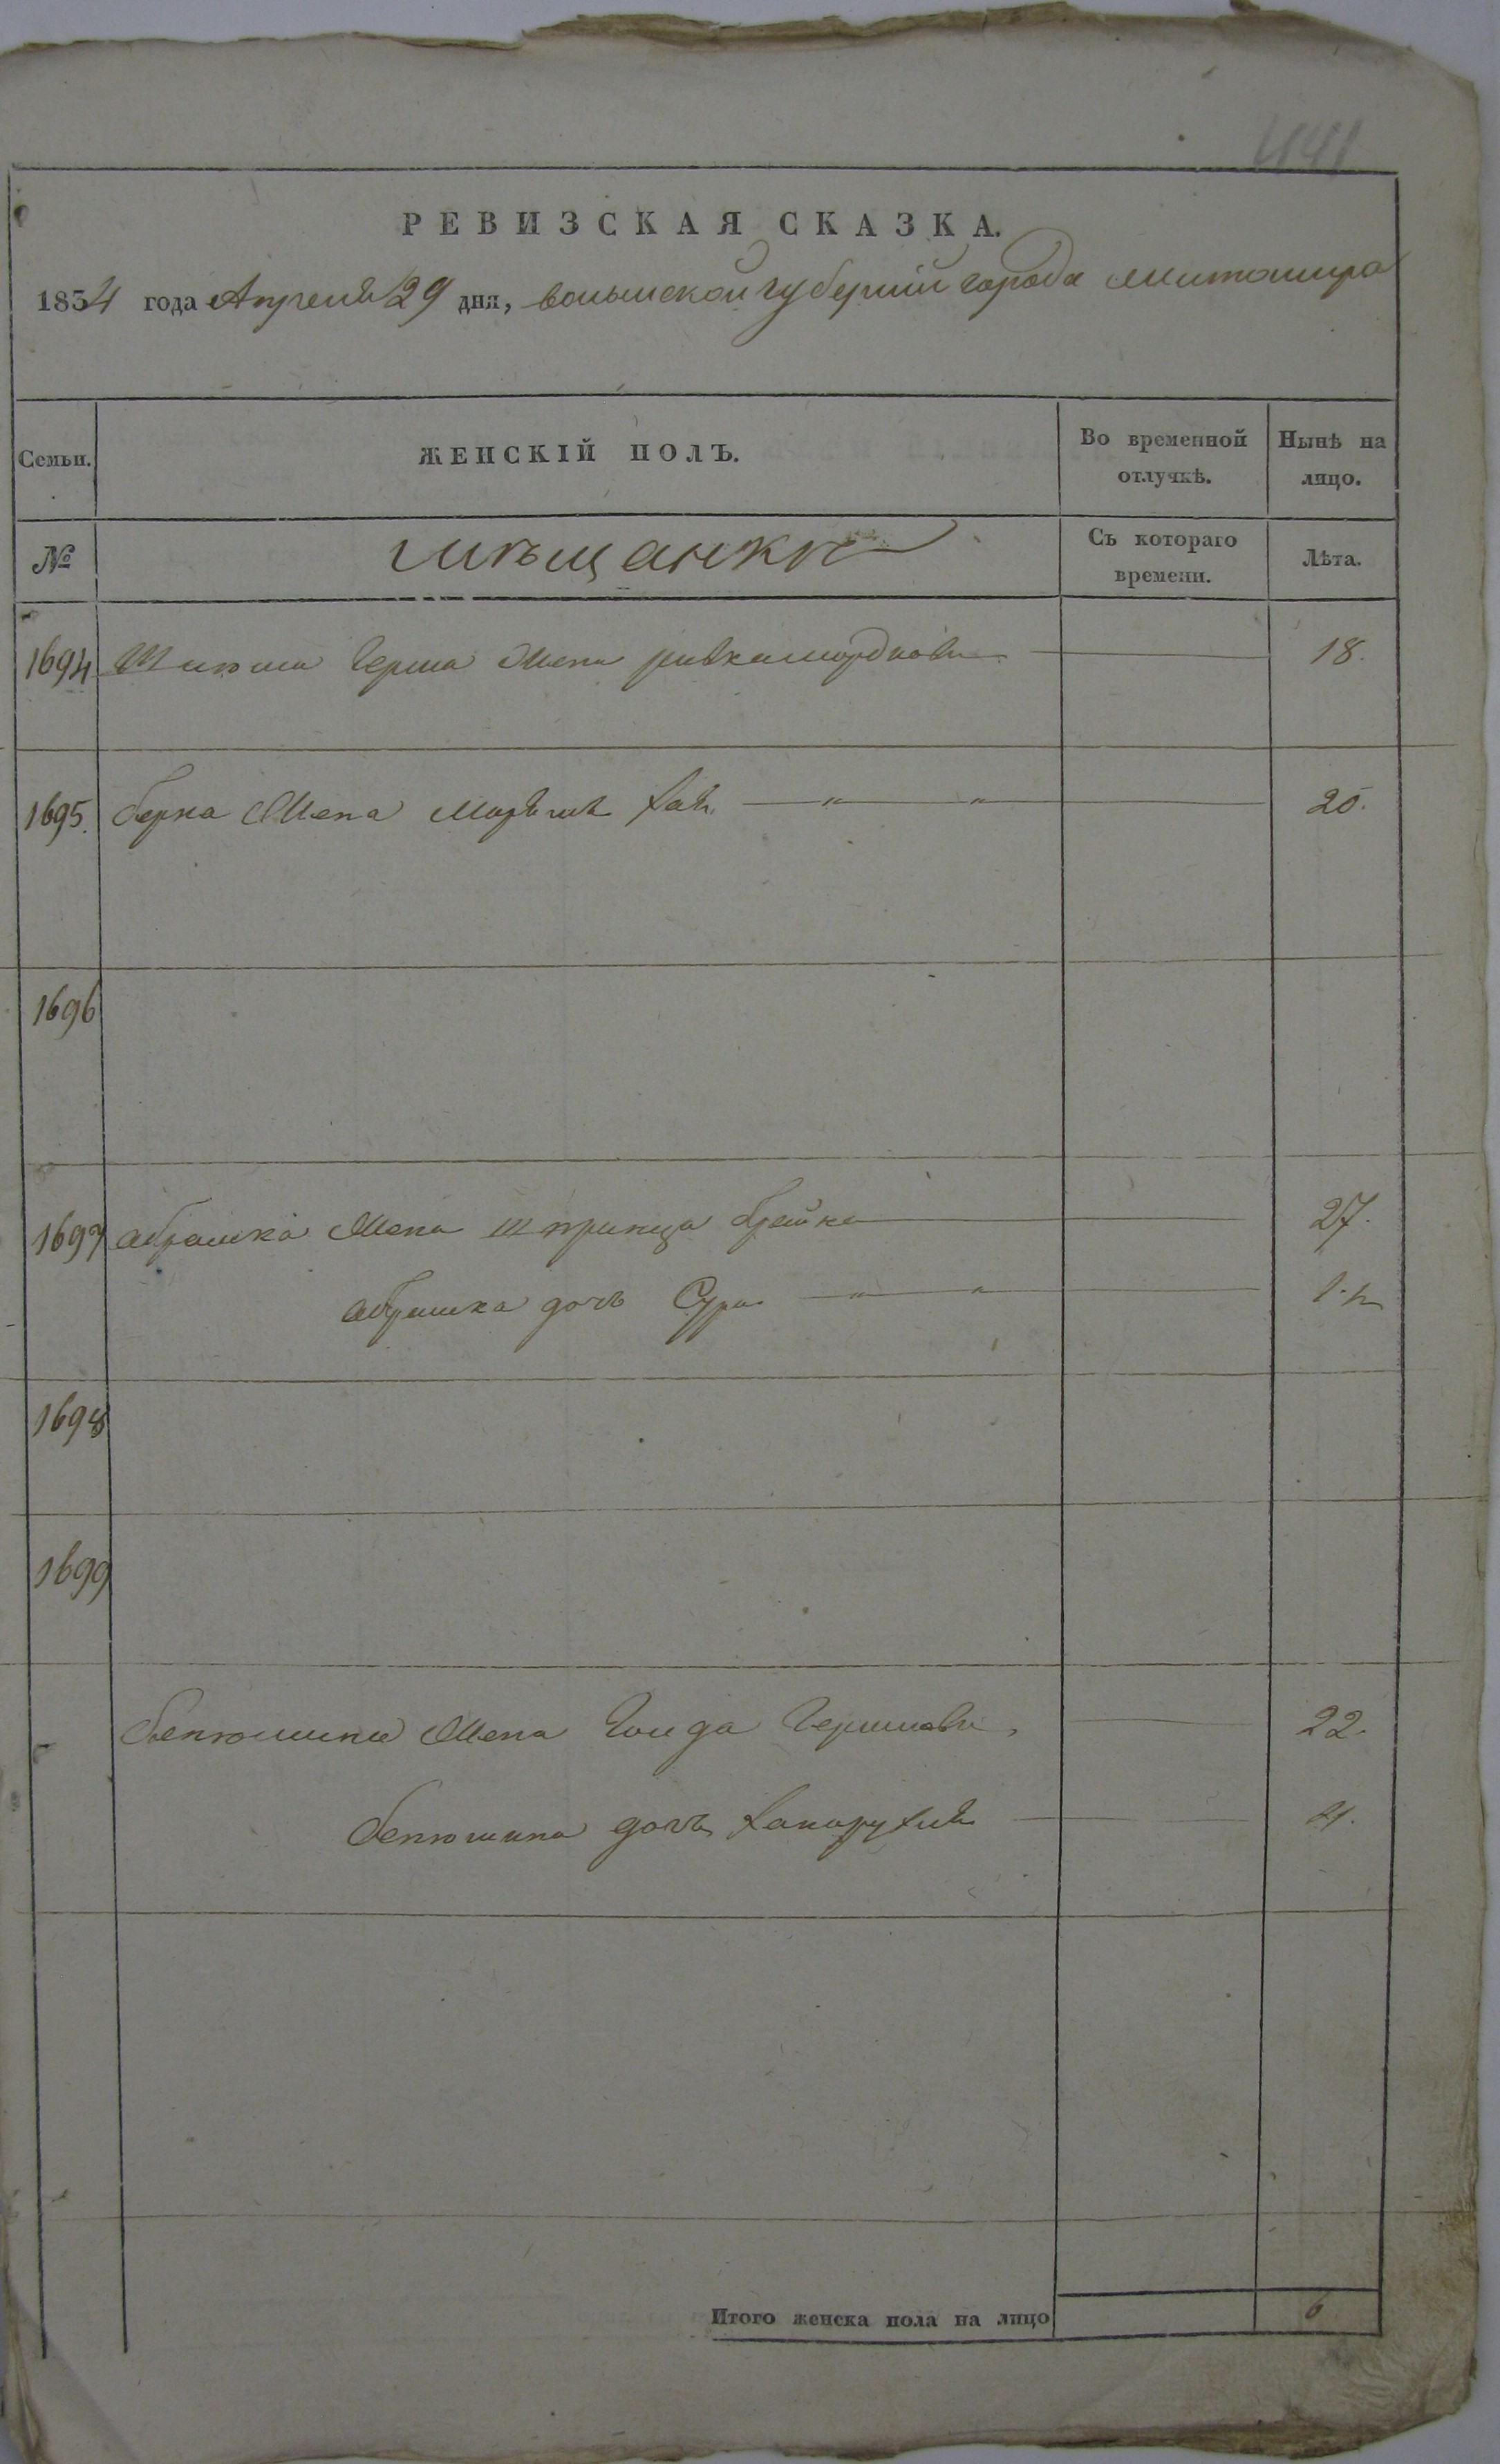 441
РЕВИЗСКАЯ СКАЗКА.
1834 года Апреля 29 дня, волынской губернiи города Житомира
Семьи.
ЖЕНСКІЙ ПОЛЪ.
Во временной отлучкѣ.
Нынѣ на лицо.
№
мѣщанки
Съ котораго времени.
Лѣта.
1694 Герша Жена ривка мордкова 18.
1695. берка Жена Хая 20.
1696
1697 абрамка Жена шпринца брейна 27.
абрамка дочь Сура
1698
1699
бенюмина Жена Голда Гершкова 22.
бенюмина дочь 4.
Итого женска пола на лицо 6